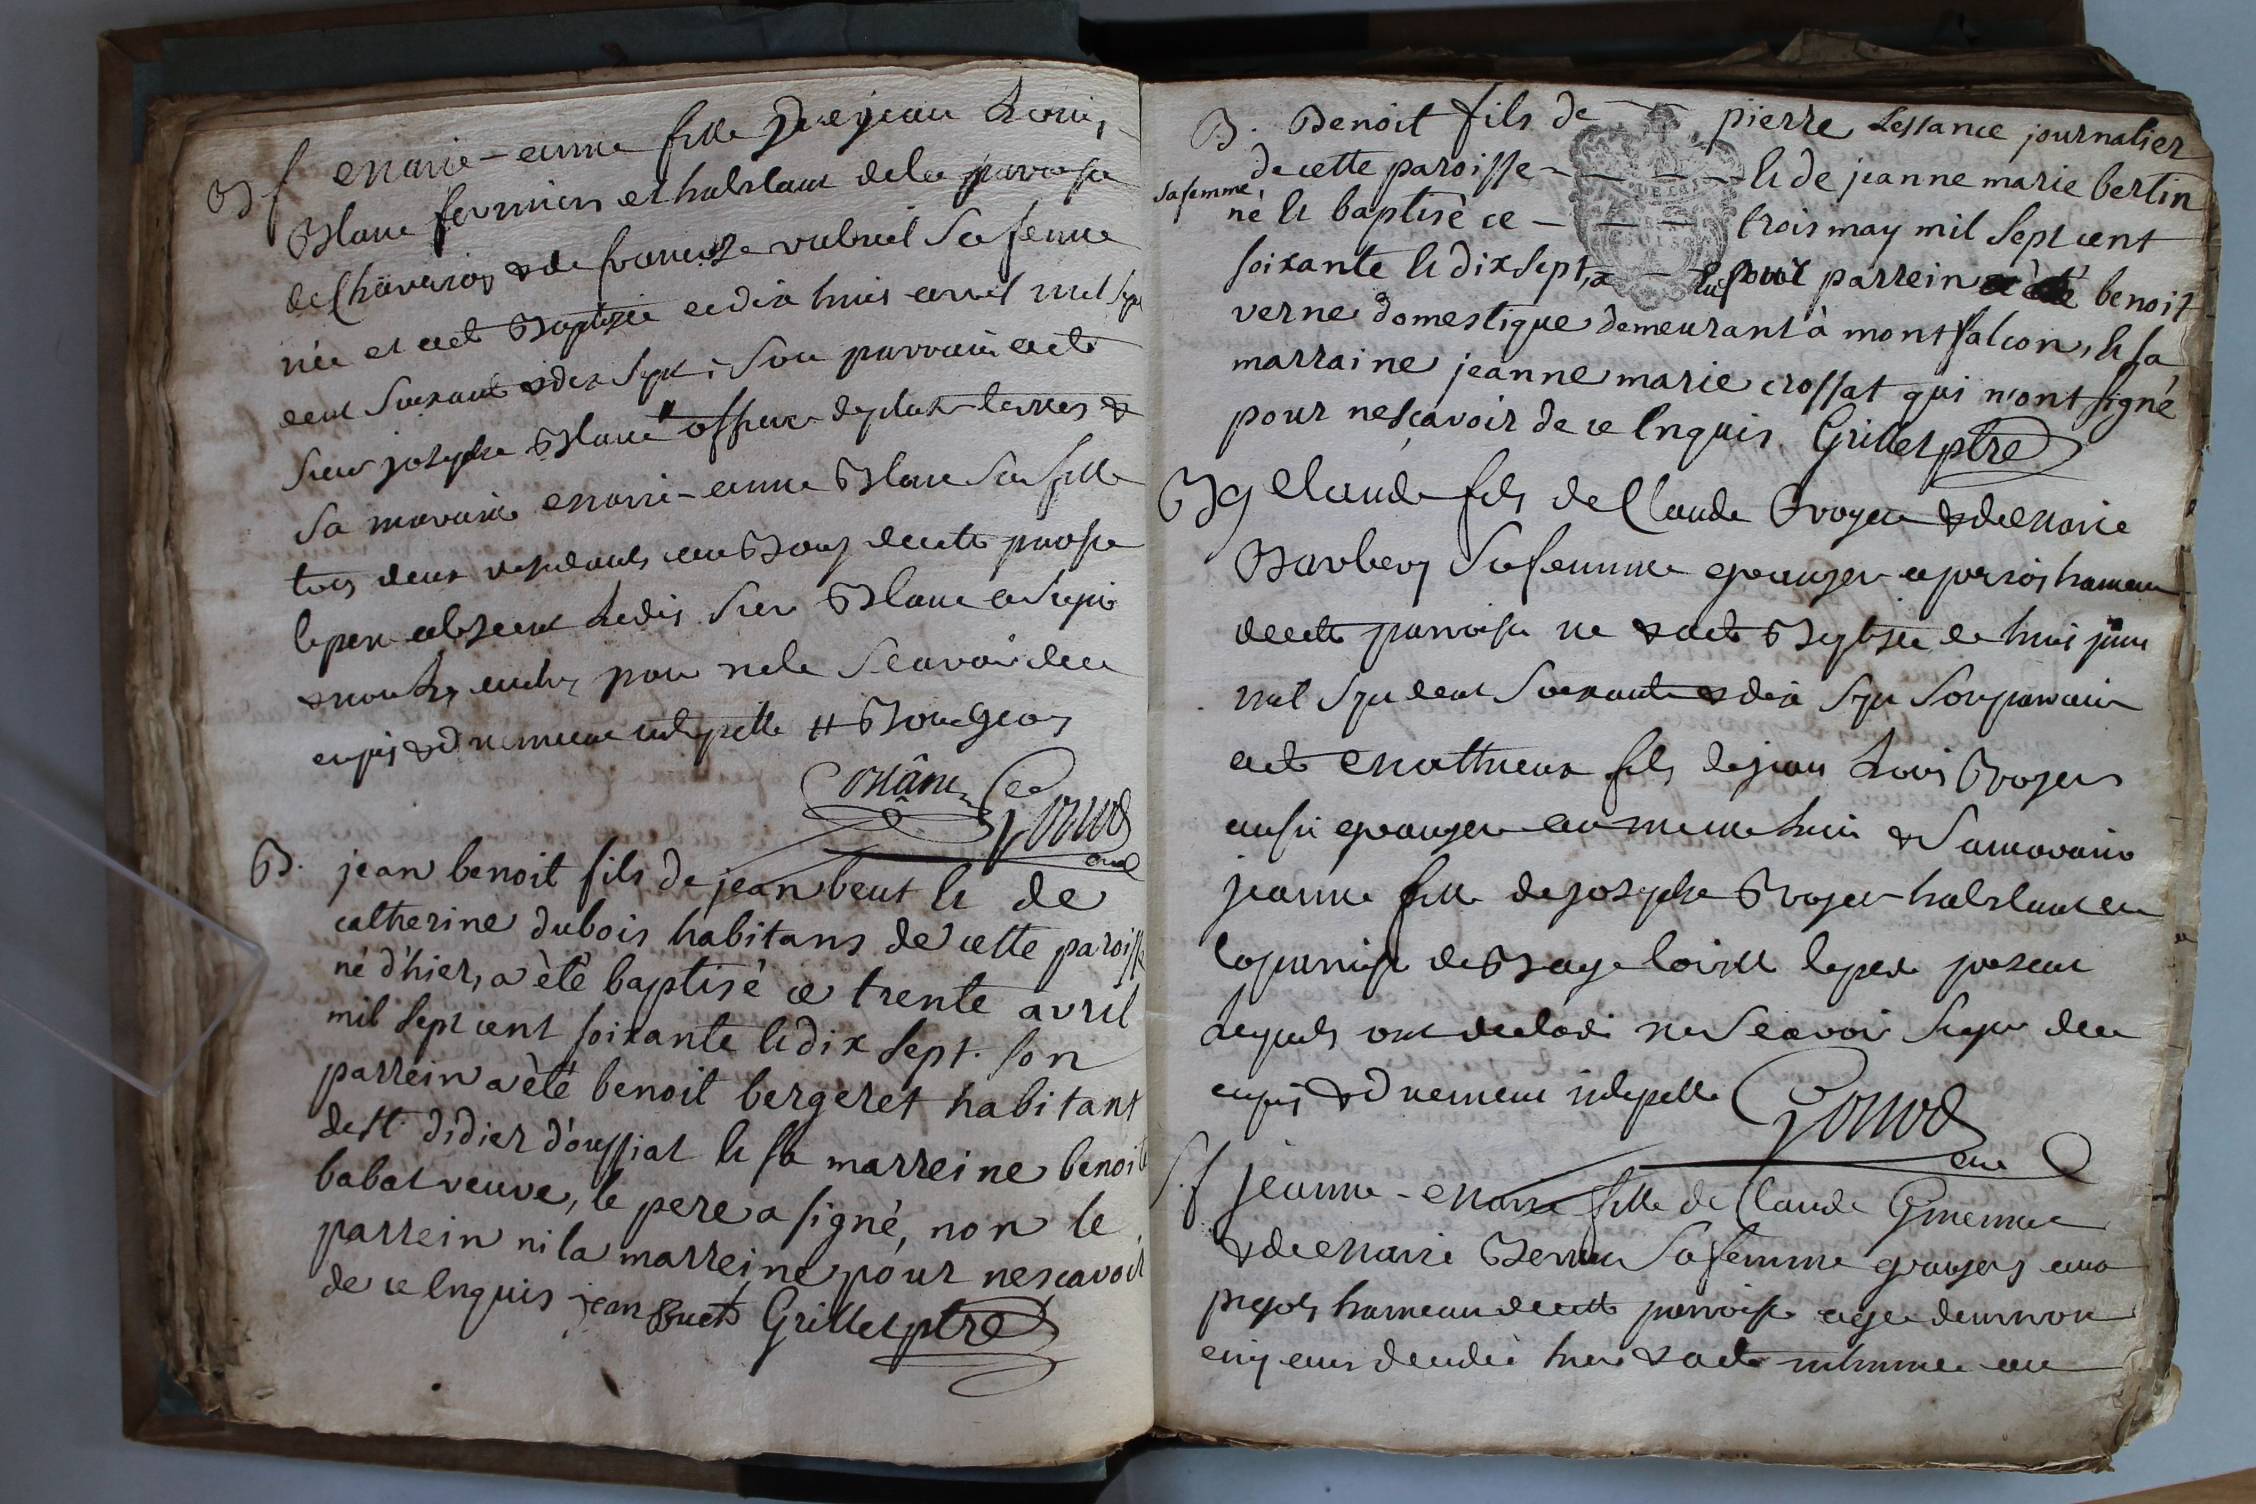 Bf Marie-anne fille de jean Louis
Blanc fermier et habitant de la paroisse
de Chaveriat & de françoise sa femme
née et a eté Baptisée ce dix huit avril mil sept
cent soixante & dix sept, son parrain a eté
sieur joseph Blanc officier &
sa maraine Marie-anne Blanc sa fille
tous deux residants au Bourg de cette paroisse
le pere absent Ledit sieur Blanc a signé
& non les autres pour ne le sçavoir de ce
enquis & duement interpellé # Bourgeois
Gonod
curé
B. jean benoit fils de jean beut et de
catherine dubois habitans de cette paroisse
né d'hier, a été baptisé ce trente avril
mil sept cent soixante et dix sept. son
parrein a été benoit bergeret habitant
de st. didier d'oussiat et sa marreine benoite
babat veuve, le pere a signé, non le
parrein ni la marreine pour nescavoir
de ce enquis jean Grillet ptre
B. Benoit fils de pierre Lessance journalier
de cette paroisse - et de jeanne marie bertin
sa femme,
né et baptisé ce - trois may mil sept cent
soixante et dix sept, parrein benoit
verne domestique demeurant à montfalcon, et sa
marraine jeanne marie crossat qui n'ont signé
pour nescavoir de ce enquis. Grillet ptre
Bg Claude fils de Claude Broyer & de Marie
Barbery sa femme granger a perroy hameau
de cette paroisse ne & a eté Baptisé le huit
mil sept cent soixante & dix sept son parrain
a eté Mathieux fils de jean Louis Broyer
aussi granger au meme lieu & sa maraine
jeanne fille de joseph Broyer habitant en
la paroisse de Bage le pere present
lesquels ont declaré ne sçavoir signer de ce
enquis & duement interpellé Gonod
curé
S.f jeanne-Marie fille de Claude
& de Marie sa femme grangers aux
hameau de cette paroisse agée d'environ
cinq ans decedée hier & a eté inhumée au